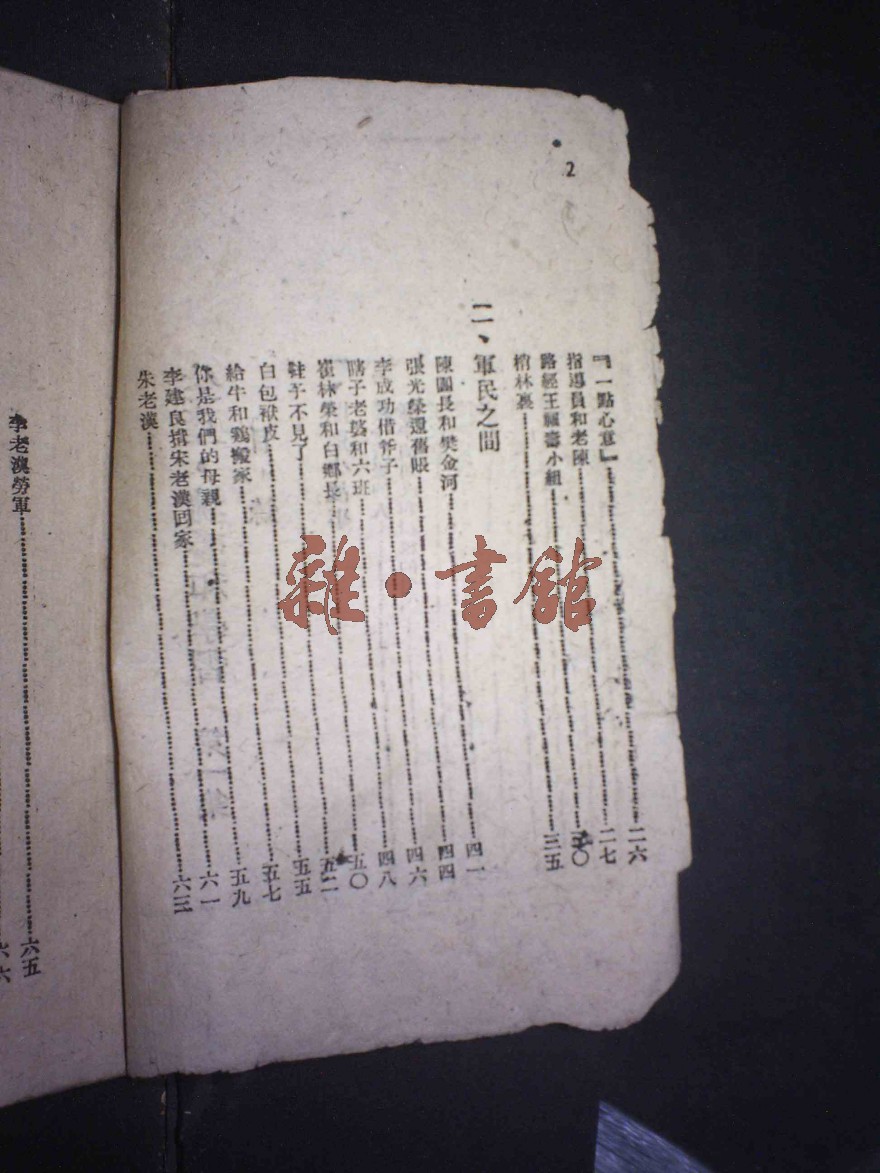 2
『一點心意』……二六
指導員和老陳……二七
路經王福壽小組……三〇
梢林裏……三五
二、軍民之間
陳團長和樊金河……四一
張光榮還舊賬……四四
李成功借斧子……四六
瞎子老婆和六班……四八
崔林榮和白鄉長……五〇
鞋子不見了……五二
白包袱皮……五五
給牛和鷄搬家……五七
你是我們的母親……五九
李建良揹宋老漢回家……六一
朱老漢……六三
李老漢勞軍……六五
六六
雜·書館